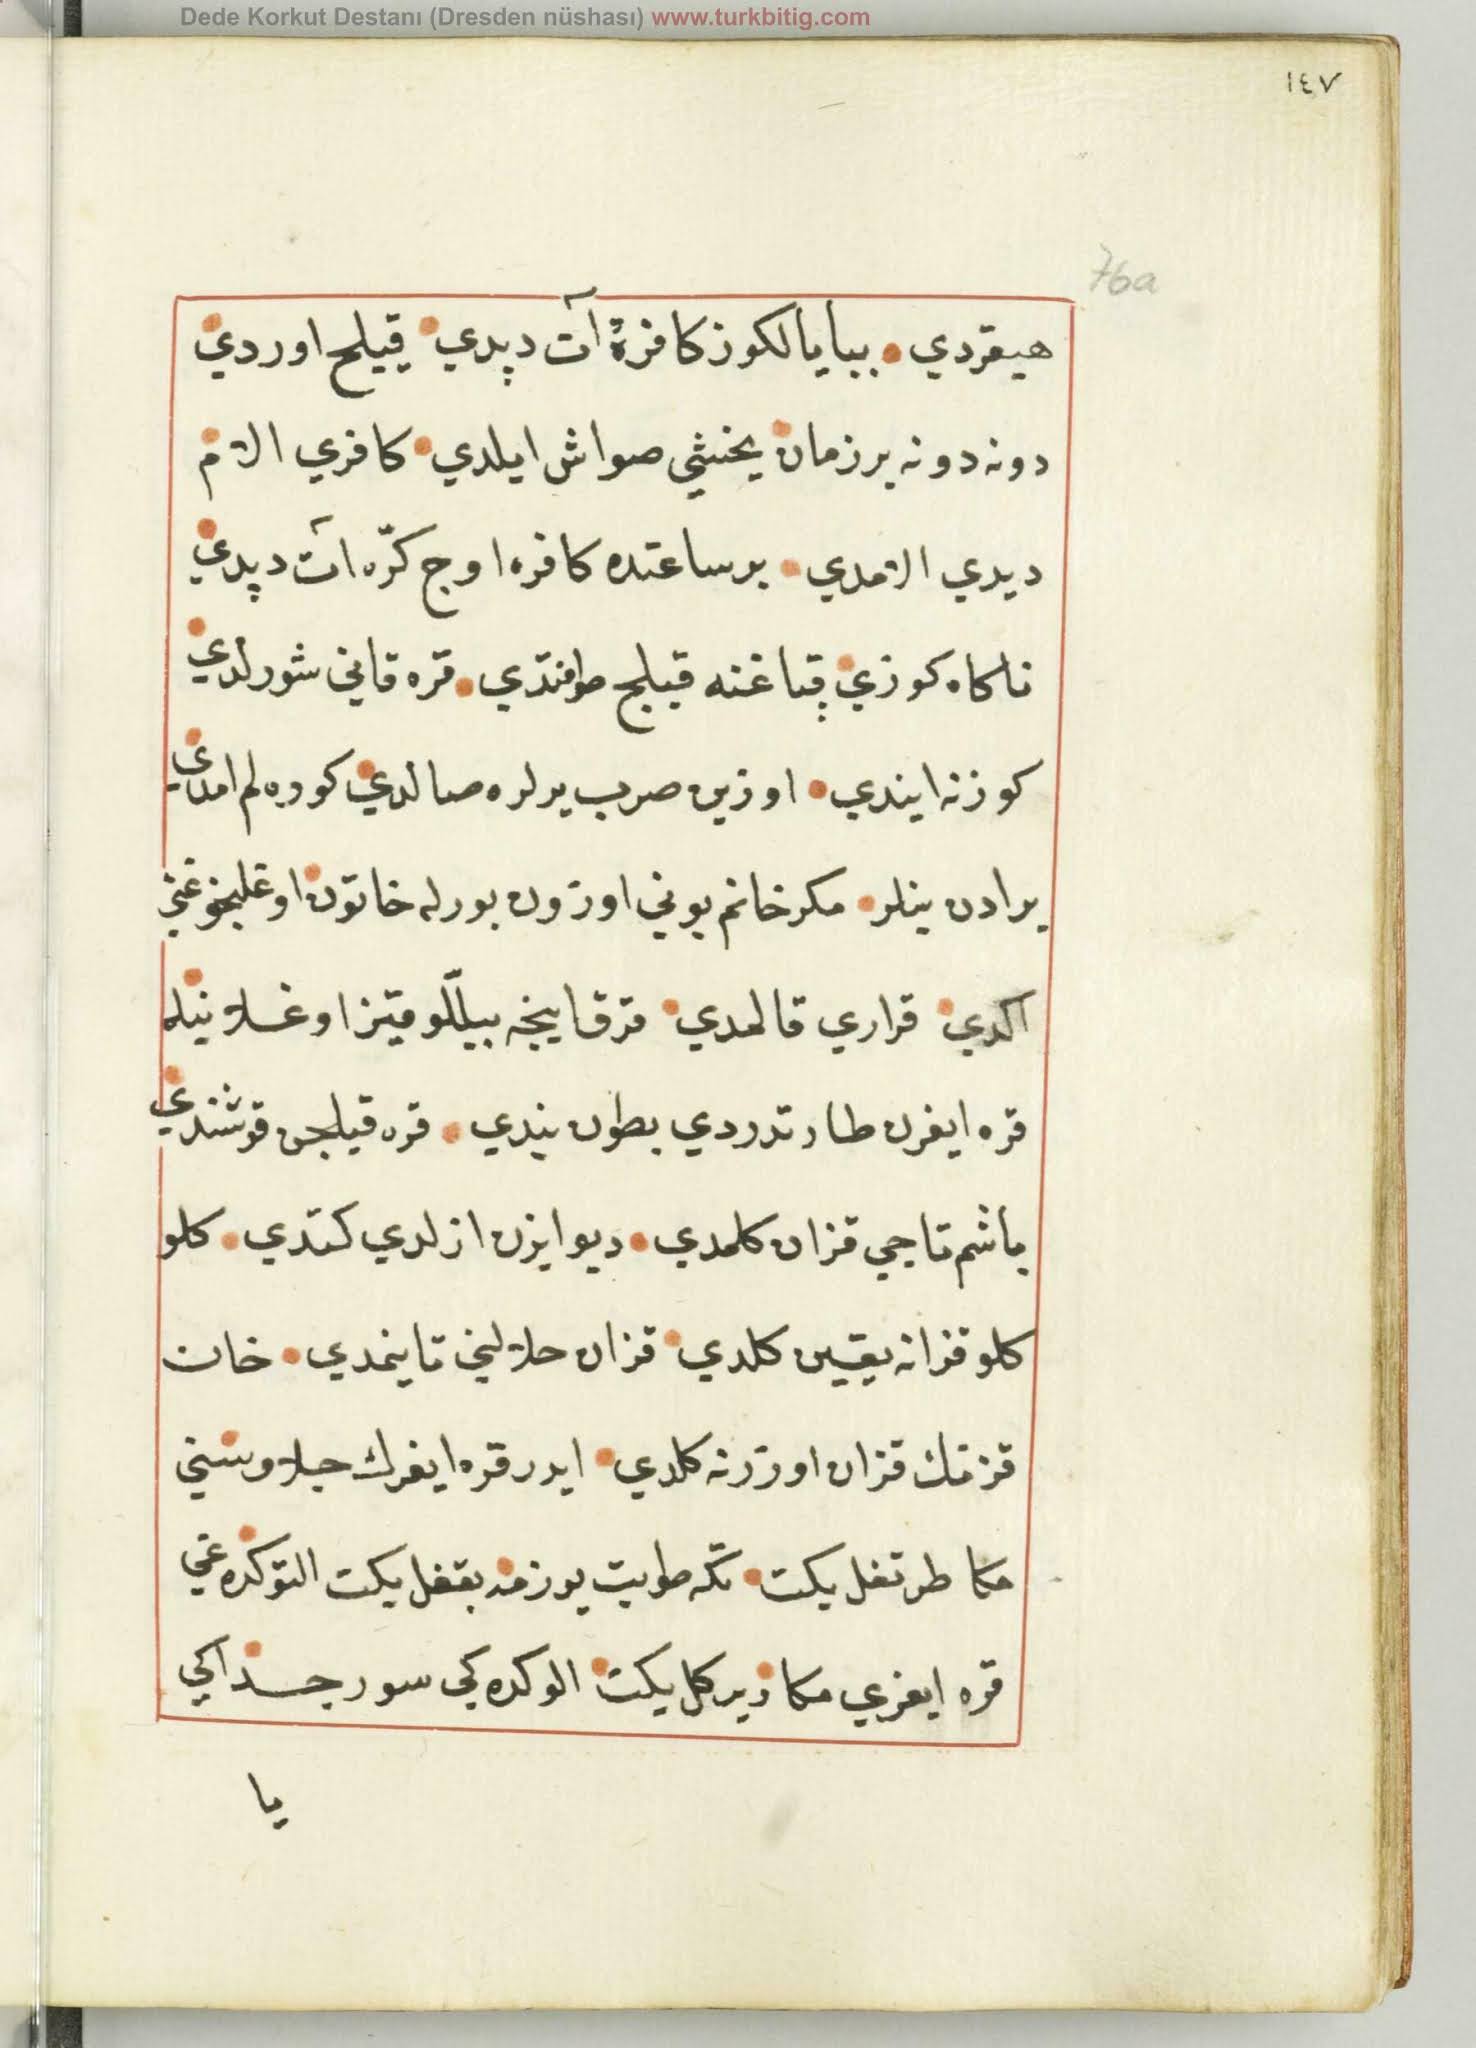 Dede Korkut Destanı (Dresden nüshası) www.turkbitig.com
١٤٧
76a
هيقردي ببايالكوز كافرهٔ آت دپدي قيليج اوردي
دونه دونه برزمان يخشي صواش ايلدي كافري الام
ديدي الامدي برساعتده كافره اوج كرّه آت دپدي
ناكاه كوزي قپاغنه قيليج طوقندي قره قاني شورلدي
كوزنه ايندي اوزين صرب يرلره صالدي كوره لم امدي
يرادن نيلر مكر خانم بوني اوزون بورله خاتون اوغلنجوغني
اكدي قراري قالمدي قرق اينجه بيللو قيز اوغلانيله
قره ايغرن طارتدردي بطون بندي قره قيلجن قوشندي
باشم تاجي قزان كلمدي ديو ايزن ازلدي كتدي كلو
كلو قزانه يقين كلدي قزان حلالني تانيمدي خان
قزنك قزان اوزرنه كلدي ايدر قره ايغرك جلاوسني
مكا طرتغل يكت تكه طويت يوزمه بقغل يكت التوكده غي
قره ايغري مكا ويركل يكت الوكده كي سور جداكي
يا